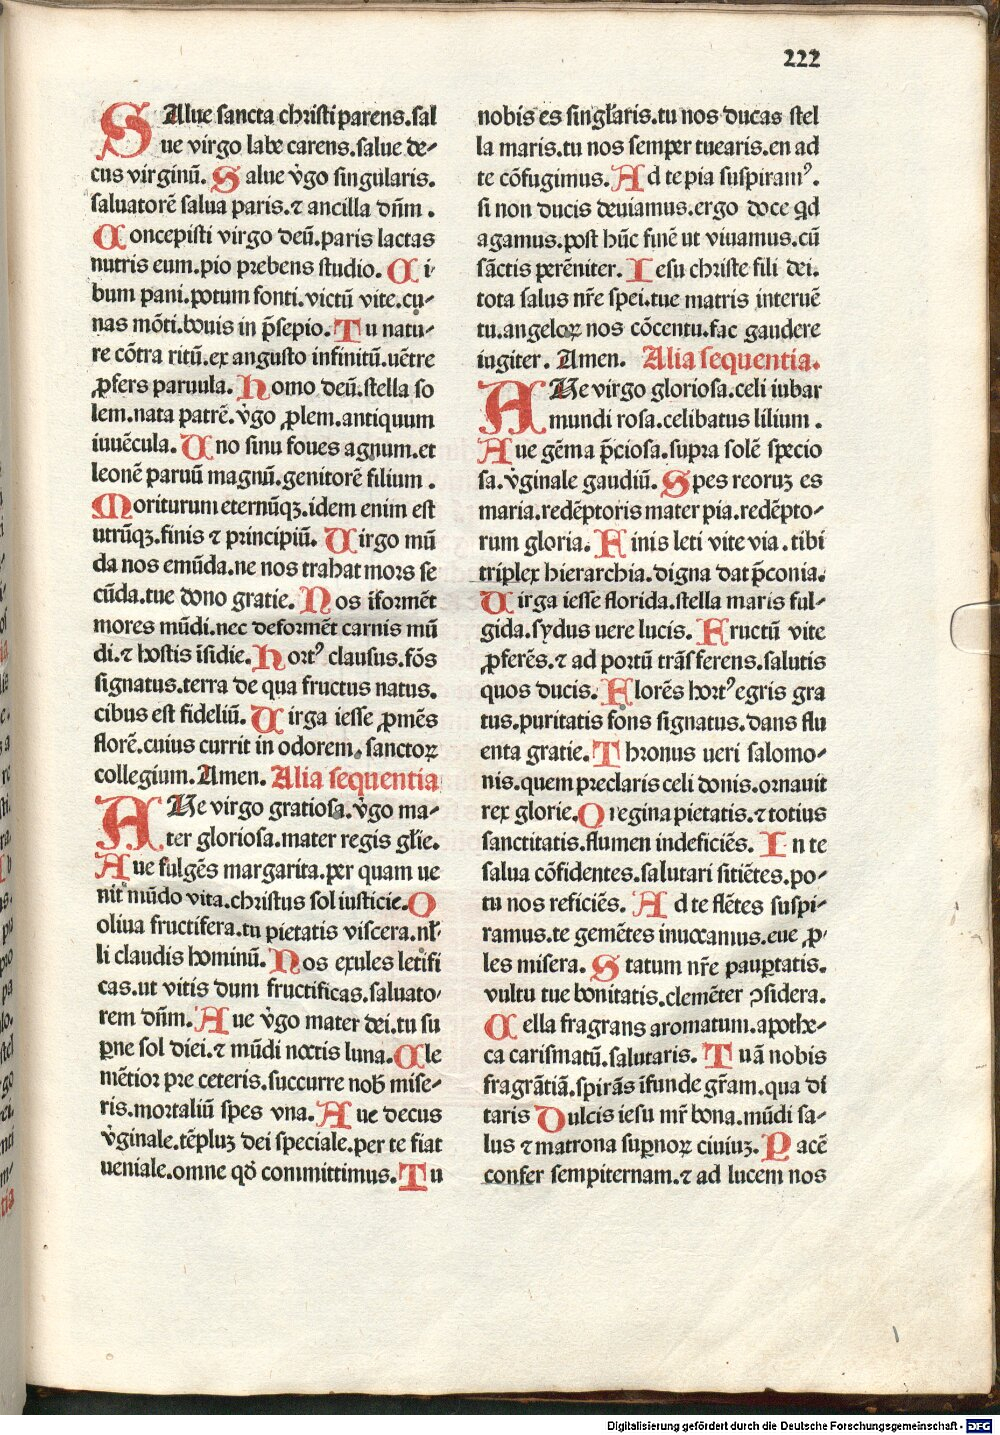 222
SAlue sancta christi parens.sal
ue virgo labe carens.salue de-
cus virginū. Salue v̇go singularis.
saluatorē salua paris.⁊ ancilla dn̄m.
Concepisti virgo deū.paris lactas
nutris eum.pio prebens studio. Ci
bum pani.potum fonti.victū vite.cu-
nas mōti.bouis in p̄sepio. Tu natu-
re cōtra ritū.ex angusto infinitū.uētre
ꝓfers paruula. Homo deū.stella so
lem.nata patrē.v̇go ꝓlem.antiquum
iuuēcula. Uno sinu foues agnum.et
leonē paruū magnū.genitorē filium.
Moriturum eternūqꝫ.idem enim est
utrūqꝫ.finis ⁊ principiū. Uirgo mū
da nos emūda.ne nos trahat mors se
cūda.tue dono gratie. Nos īformēt
mores mūdi.nec deformēt carnis mū
di.⁊ hostis īsidie. Hortꝰ clausus.fōs
signatus.terra de qua fructus natus.
cibus est fideliū. Uirga iesse ꝓmēs
florē.cuius currit in odorem.sanctoꝝ
collegium. Amen. Alia sequentia
AUe virgo gratiosa.v̇go ma-
ter gloriosa.mater regis gl̄ie.
Aue fulgēs margarita.per quam ue
nit mūdo vita.christus sol iusticie. O
oliua fructifera.tu pietatis viscera.nł-
li claudis hominū. Nos exules letifi
cas.ut vitis dum fructificas.saluato-
rem dn̄m. Aue v̇go mater dei.tu su
ꝑne sol diei.⁊ mūdi noctis luna. Cle
mētior pre ceteris.succurre nob̄ mise-
ris.mortaliū spes vna. Aue decus
v̇ginale.tēpluꝫ dei speciale.per te fiat
ueniale.omne qd̄ committimus. Tu
nobis es singl̓aris.tu nos ducas stel
la maris.tu nos semper tuearis.en ad
te cōfugimus. Ad te pia suspiramꝰ.
si non ducis deuiamus.ergo doce qd
agamus.post hūc finē ut viuamus.cū
sāctis perēniter. Iesu christe fili dei.
tota salus nr̄e spei.tue matris interuē
tu.angeloꝝ nos cōcentu.fac gaudere
iugiter. Amen. Alia sequentia.
AUe virgo gloriosa.celi iubar
mundi rosa.celibatus lilium.
Aue gēma p̄ciosa.supra solē specio
sa.v̇ginale gaudiū. Spes reoruꝫ es
maria.redēptoris mater pia.redēpto-
rum gloria. Finis leti vite via.tibi
triplex hierarchia.digna dat p̄conia.
Uirga iesse florida.stella maris ful-
gida.sydus uere lucis. Fructū vite
ꝓferēs.⁊ ad portū trāsferens.salutis
quos ducis. Florēs hortꝰ egris gra
tus.puritatis fons signatus.dans flu
enta gratie. Thronus ueri salomo-
nis.quem preclaris celi donis.ornauit
rex glorie. O regina pietatis.⁊ totius
sanctitatis.flumen indeficiēs. In te
salua cōfidentes.salutari sitiētes.po-
tu nos reficiēs. Ad te flētes suspi-
ramus.te gemētes inuocamus.eue ꝓ-
les misera. Statum nr̄e pauꝑtatis.
vultu tue bonitatis.clemēter ↄsidera.
Cella fragrans aromatum.apothe-
ca carismatū.salutaris. Tuā nobis
fragrātiā.spirās īfunde gr̄am.qua di
taris Dulcis iesu mr̄ bona.mūdi sa-
lus ⁊ matrona suꝑnoꝝ ciuiuꝫ. Pacē
confer sempiternam.⁊ ad lucem nos
Digitalisierung gefördert durch die Deutsche Forschungsgemeinschaft - DFG